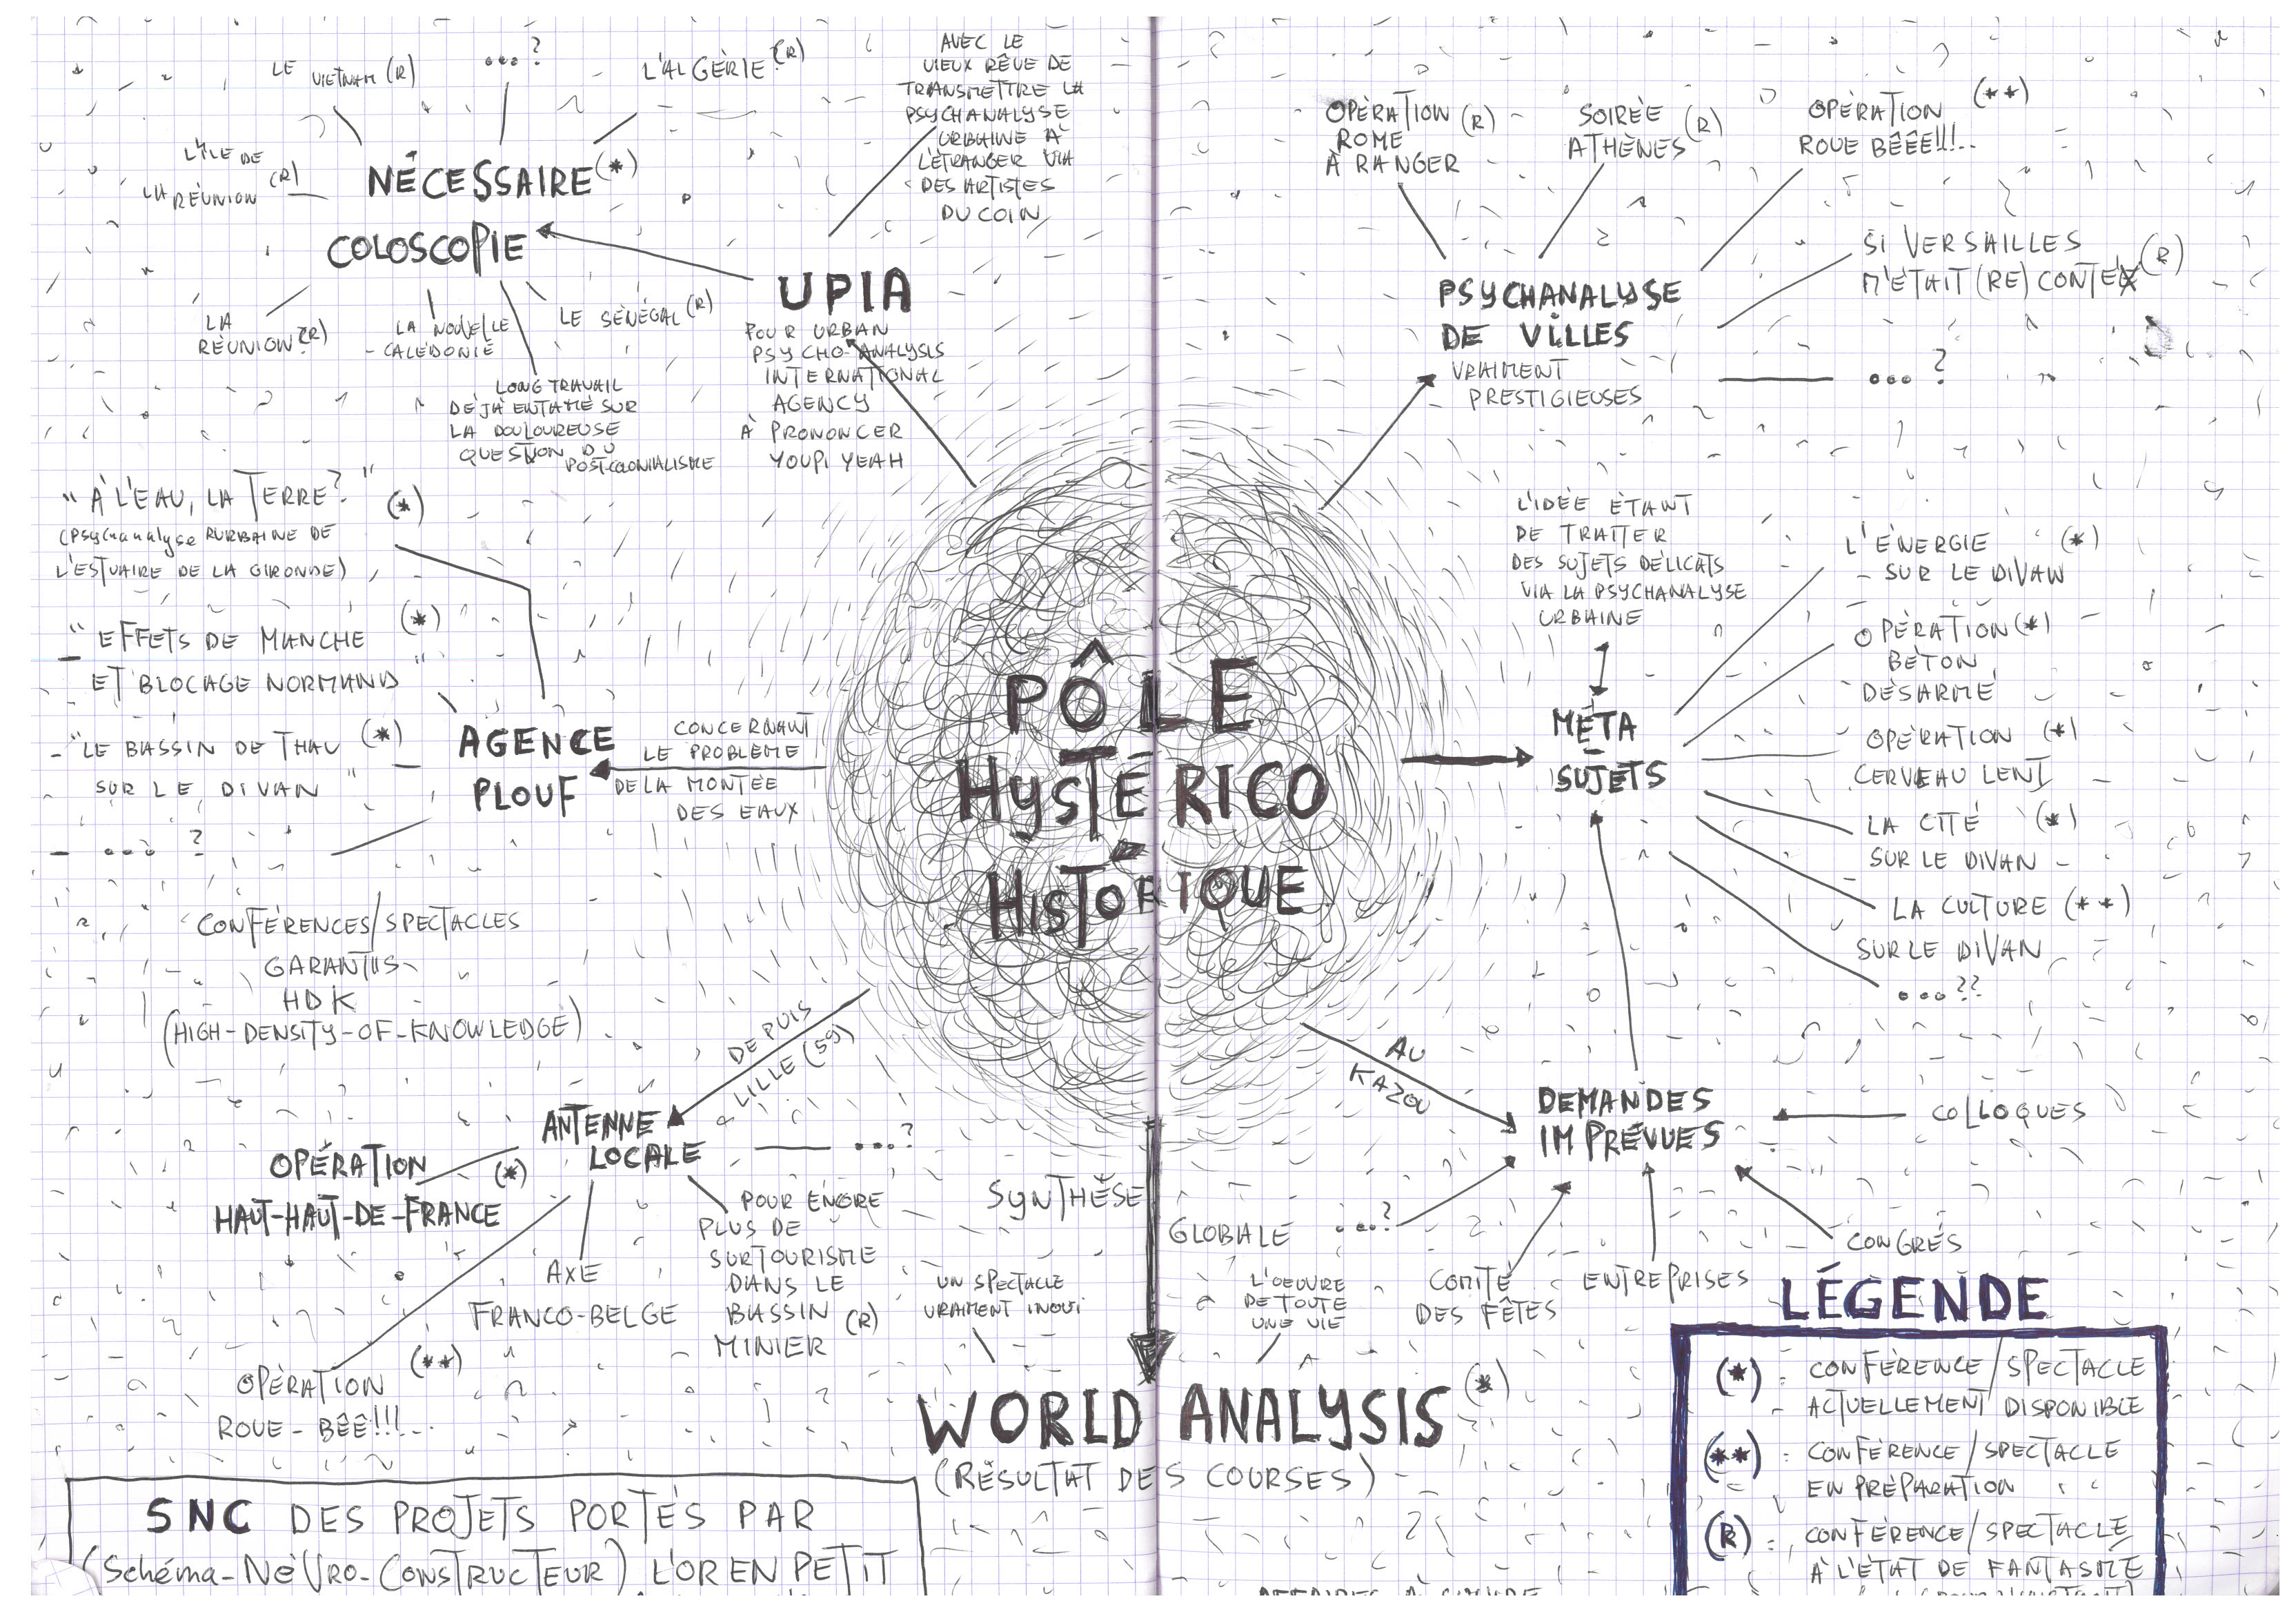 LE VIETNAM (R)
...?
L'ALGÉRIE (R)
L'ÎLE DE
LA RÉUNION (R)
NÉCESSAIRE (*)
COLOSCOPIE
LA
RÉUNION (R)
LA NOUVELLE
- CALÉDONIE
LE SÉNÉGAL (R)
LONG TRAVAIL
DÉJÀ ENTAMÉ SUR
LA DOULOUREUSE
QUESTION DU
POST-COLONIALISME
AVEC LE
VIEUX RÊVE DE
TRANSMETTRE LA
PSYCHANALYSE
URBAINE À
L'ÉTRANGER VIA
DES ARTISTES
DU COIN
UPIA
POUR URBAN
PSYCHO-ANALYSIS
INTERNATIONAL
AGENCY
À PRONONCER
YOUPI YEAH
OPÉRATION (R)
ROME
À RANGER
SOIRÉE (R)
ATHÈNES
OPÉRATION (**)
ROUE BÊÊE!!!...
SI VERSAILLES
M'ÉTAIT (RE) CONTÉ (R)
PSYCHANALYSE
DE VILLES
VRAIMENT
PRESTIGIEUSES
... ?
"À L'EAU, LA TERRE?" (*)
(PSYCHANALYSE RURBAINE DE
L'ESTUAIRE DE LA GIRONDE)
- "EFFETS DE MANCHE (*)
ET BLOCAGE NORMAND"
- "LE BASSIN DE THAU (*)
SUR LE DIVAN"
- ... ?
AGENCE
PLOUF
CONCERNANT
LE PROBLÈME
DE LA MONTÉE
DES EAUX
PÔLE
HYSTÉRICO
HISTORIQUE
L'IDÉE ÉTANT
DE TRAITER
DES SUJETS DÉLICATS
VIA LA PSYCHANALYSE
URBAINE
MÉTA
SUJETS
L'ÉNERGIE (*)
SUR LE DIVAN
OPÉRATION (*)
BÉTON
DÉSARMÉ
OPÉRATION (*)
CERVEAU LENT
LA CITÉ (*)
SUR LE DIVAN
LA CULTURE (**)
SUR LE DIVAN
...??
CONFÉRENCES/SPECTACLES
GARANTIS
HDK
(HIGH-DENSITY-OF-KNOWLEDGE)
DEPUIS
LILLE (59)
ANTENNE
LOCALE
...?
OPÉRATION (*)
HAUT-HAUT-DE-FRANCE
AXE
FRANCO-BELGE
POUR ENCORE
PLUS DE
SURTOURISME
DANS LE
BASSIN (R)
MINIER
OPÉRATION (**)
ROUE-BÊÊ!!!...
AU
KAZOU
DEMANDES
IMPRÉVUES
COLLOQUES
CONGRÈS
ENTREPRISES
COMITÉ
DES FÊTES
...?
SYNTHÈSE
GLOBALE
UN SPECTACLE
VRAIMENT INOUÏ
L'OEUVRE
DE TOUTE
UNE VIE
WORLD ANALYSIS (*)
(RÉSULTAT DES COURSES)
LÉGENDE
(*) : CONFÉRENCE/SPECTACLE
ACTUELLEMENT DISPONIBLE
(**) : CONFÉRENCE/SPECTACLE
EN PRÉPARATION
(R) : CONFÉRENCE/SPECTACLE
À L'ÉTAT DE FANTASME
SNC DES PROJETS PORTÉS PAR
(Schéma-NÉVRO-CONSTRUCTEUR) L'OR EN PETIT